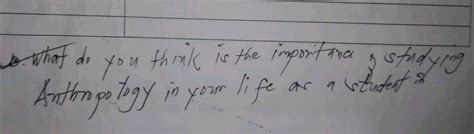 What do you think is the importance of studying
Anthropology in your life as a student?